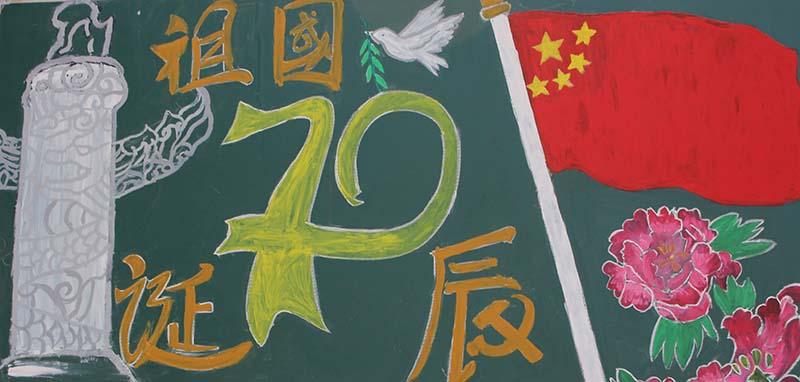 祖國
70
诞辰